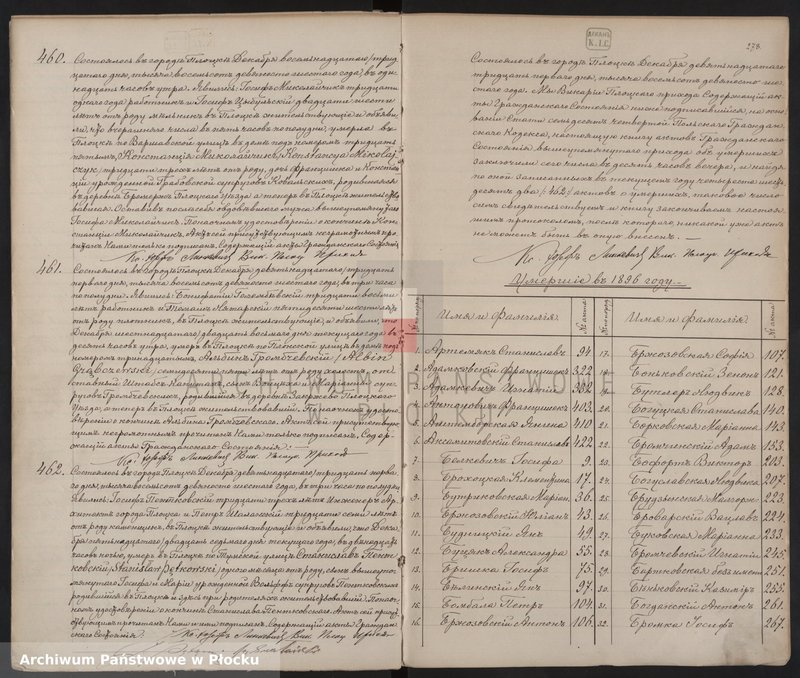 460.
Состоялось въ городѣ Плоцкѣ Декабря восемьнадцатаго /трид
цатаго дня, тысяча восемьсотъ девяносто шестаго года, въ оди
надцать часовъ утра. Явились: Іосифъ Миколайчикъ тридцати
одного года работникъ и Іосифъ Цыбульскій двадцати шести
лѣтъ отъ роду мѣльникъ въ Плоцкѣ жительствующіе и объяви
ли, что вчерашняго числа въ пять часовъ по полудни, умерла въ
Плоцкѣ по Варшавской улицѣ въ домѣ подъ номеромъ тридцать
пятымъ, Констанція Миколайчикъ /Konstancya Mikołaj
czyk/ тридцати трехъ лѣтъ отъ роду, дочь Францишка и Констан
ціи урожденной Грабовской супруговъ Ковальскихъ, родившаяся
въ деревнѣ Плоцкаго Уѣзда а теперь въ Плоцкѣ жительство
вавшая. Оставивъ по себѣ овдовѣвшаго мужа вышеупомянутаго
Іосифа Миколайчика. По настоящемъ удостовѣреніи о кончинѣ Кон
станціи Миколайчикъ, Актъ сей присутствующимъ неграмотнымъ про
читанъ Нами только подписанъ, Содержащій акты Гражданскаго Состоянія
461.
Состоялось въ городѣ Плоцкѣ Декабря девятьнадцатаго /тридцать
перваго дня, тысяча восемьсотъ девяносто шестаго года, въ три часа
по полудни. Явились: Голембіевскій тридцати восьми
лѣтъ работникъ и пятидесяти шести лѣтъ
отъ роду плотникъ, въ Плоцкѣ жительствующіе, и объявили, что
Декабря шестнадцатаго /двадцать восьмаго дня текущаго года въ
десять часовъ утра, умеръ въ Плоцкѣ по Плонской улицѣ въ домѣ подъ
номеромъ тринадцатымъ, Альбинъ Громбчевскій /Albin
Grąbczewski/ семидесяти пяти лѣтъ отъ роду холостъ, от
ставный Штабсъ Капитанъ, сынъ и Маріанны су
пруговъ Громбчевскихъ, родившійся въ деревнѣ Закржево Плоцкаго
Уѣзда, а теперь въ Плоцкѣ жительствовавшій. По настоящемъ удосто
вѣреніи о кончинѣ Альбина Громбчевскаго. Актъ сей присутствую
щимъ неграмотнымъ прочитанъ Нами только подписанъ, Содер
жащій акты Гражданскаго Состоянія
462.
Состоялось въ городѣ Плоцкѣ Декабря девятьнадцатаго /тридцать перва
го дня, тысяча восемьсотъ девяносто шестаго года, въ три часа по полудни
Явились: Іосифъ Пентковскій тридцати трехъ лѣтъ Инженеръ Ар
хитекторъ города Плоцка и Петръ тридцати семи лѣтъ
отъ роду въ Плоцкѣ жительствующіе и объявили, что Дека
бря пятнадцатаго /двадцать седьмаго дня текущаго года, въ двѣнадцать
часовъ ночью, умеръ въ Плоцкѣ по Тумской улицѣ Станиславъ Пент
ковскій /Stanisław Pętkowski/ одного мѣсяца отъ роду, сынъ вышеупо
мянутаго Іосифа и Маріи урожденной Вольффъ супруговъ Пентковскихъ
родившійся въ Плоцкѣ и здѣсь при родителяхъ жительствовавшій. По настоя
щемъ удостовѣреніи о кончинѣ Станислава Пентковскаго. Актъ сей присут
ствующимъ прочитанъ Нами и ими подписанъ. Содержащій акты Граждан
скаго Состоянія
278.
K.I.C.
Состоялось въ городѣ Плоцкѣ Декабря девятьнадцатаго
тридцать перваго дня, тысяча восемьсотъ девяносто ше
стаго года. Мы Викарій Плоцкаго прихода Содержащій ак
ты Гражданскаго Состоянія ниже подписавшійся, на осно
ваніи Статьи семьдесятъ четвертой Польскаго Граждан
скаго Кодекса, настоящую книгу актовъ Гражданскаго
Состоянія вышеупомянутаго прихода объ умершихъ
заключили сего числа въ десять часовъ вечера, и найдя
по оной записанныхъ въ текущемъ году четыреста шесть
десятъ два /:462:/ актовъ о умершихъ, таковое число
симъ свидѣтельствуемъ и книгу закончиваемъ настоя
щимъ протоколомъ, послѣ котораго никакой уже актъ
не можетъ быть въ оную внесенъ.
Умершіе въ 1896 году.
Имя и Фамилія. № акта Имя и Фамилія. № акта
1. Артемякъ Станиславъ 94. 17. Бржозовская Софія 107.
2. Адамковскій Францишекъ 322. 18. Боньковскій Зенонъ 121.
3. Адамкевичъ Игнатій 19. Бутлеръ Людвикъ 128.
4. Антцовичъ Францишекъ 403. 20. Богуцкая Станислава 140.
5. Аппельборгъ Янина 410 21. Борковская Маріанна 143.
6. Аксамитовскій Станиславъ 422. 22. Бромчинскій Адамъ 153.
7. Болкевичъ Іосифа 9. 23. Бофортъ Викторъ 203.
8. Брохоцкая Клементина 17. 24. Богуславская Людвика 207.
9. Бутриковская Маріан. 36. 25. 223.
10. Бржозовскій Юліанъ 43. 26. Броварскій Вацлавъ 224.
11. Будницкій Янъ 49. 27. Буковская Маріанна 233.
12. Буцякъ Александра 55. 28. Бромчевскій Игнатій 245
13. Бришка Іосифъ 75. 29. Бартковская 251.
14. Бѣлинскій Янъ 97. 30. Беньковскій Казиміръ 255.
15. Бомбала Петръ 104. 31. Богданскій Антонъ 261.
16. Бржозовскій Антонъ 106. 32. Бромка Іосифъ 267.
ARCHIWUM PAŃSTWOWE
W PŁOCKU
Archiwum Państwowe w Płocku